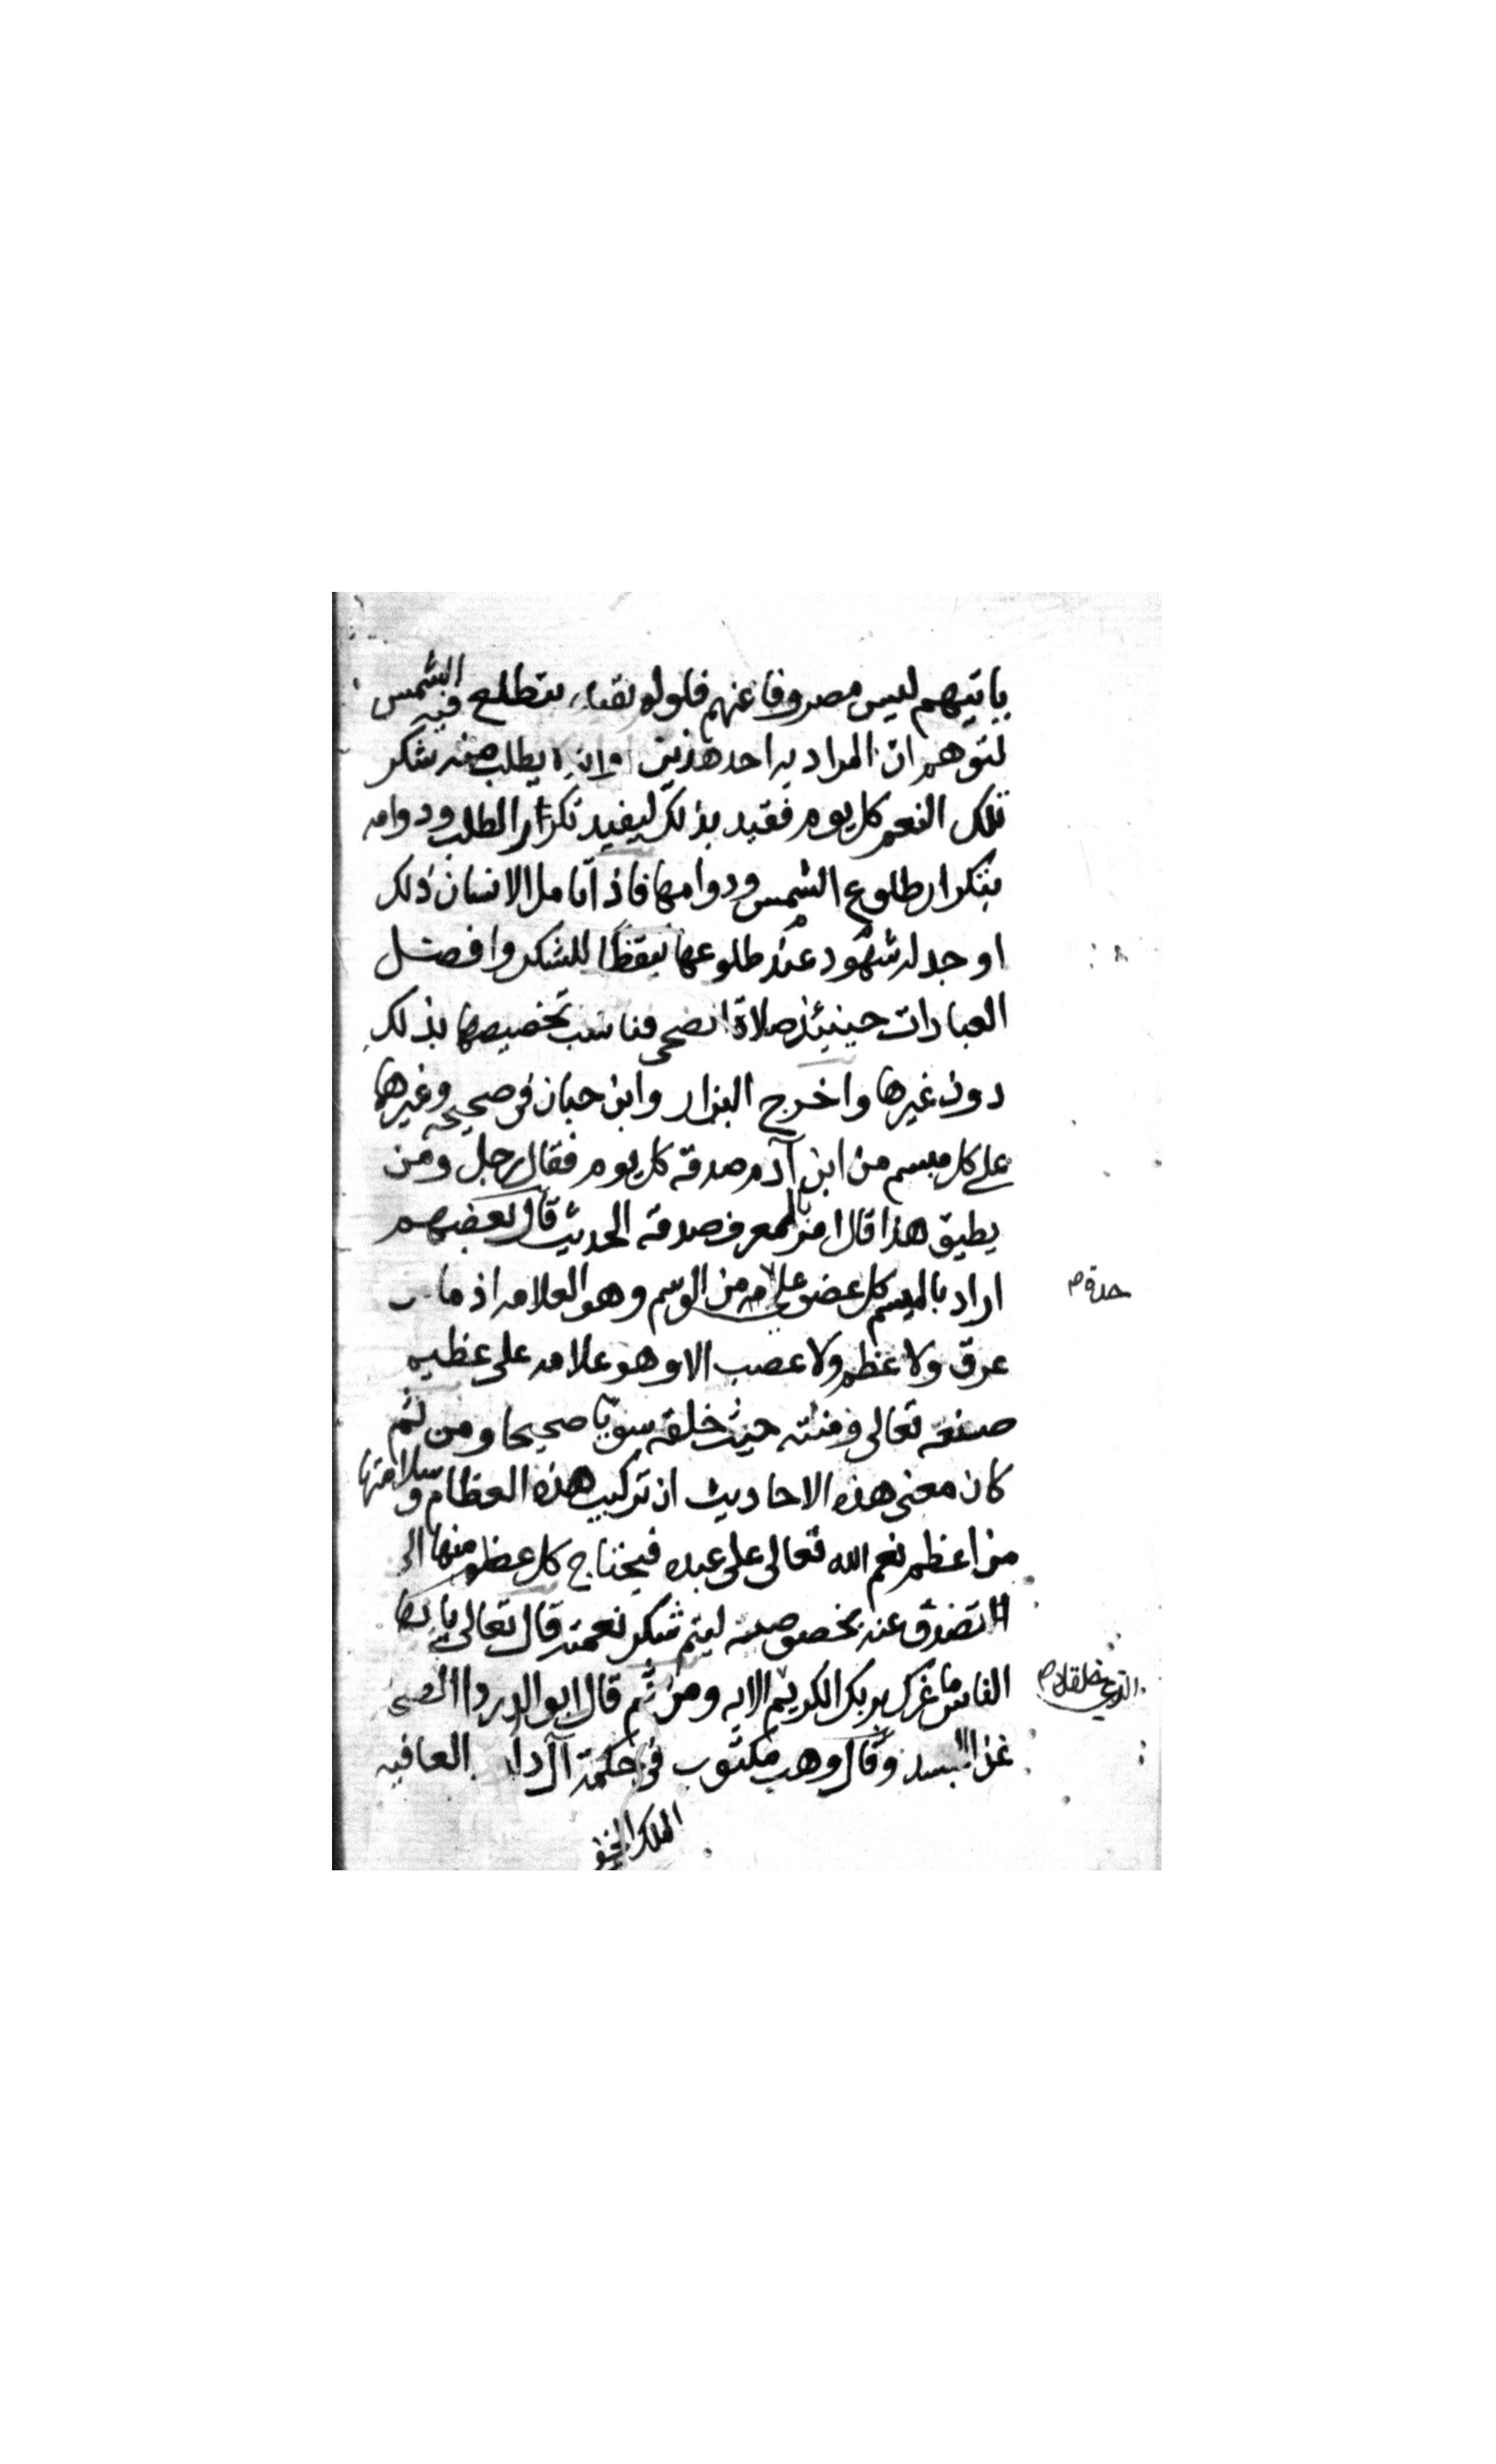 ياتيهم ليس مصروفا عنهم فلو لم يقيد بتطلع فيه الشمس
لتوهم ان المراد به احد هذين وانه يطلب منه شكر
تلك النعم كل يوم فقيد بذلك ليفيد تكرار الطلب ودوامه
بتكرار طلوع الشمس ودوامها فاذا تامل الانسان ذلك
اوجد له شهود عند طلوعها تيقظا للشكر وافضل
العبادات حينئذ صلاة الضحى فناسب تخصيصها بذلك
دون غيرها واخرج البزار وابن حبان في صحيحه وغيرها
على كل ميسم من ابن آدم صدقة كل يوم فقال رجل ومن
يطيق هذا قال امر بالمعرف صدقة الحديث قال بعضهم
اراد بالميسم كل عضو علامه من الوسم وهو العلامه اذ ما من
حدة م
عرق ولا عظم ولا عصب الا وهو علامه على عظيم
صنعه تعالى ومنته حيث خلقه سويا صحيحا ومن ثم
كان معنى هذه الاحاديث ان تركيب هذه العظام وسلامتها
من اعظم نعم الله تعالى على عبده فيحتاج كل عظم منها الى
التصدق عنه بخصوصه ليتم شكر نعمته قال تعالى يا ايها
الناس ما غرك بربك الكريم الايه ومن ثم قال ابو الدردا الصحة
غنا الجسد وقال وهب مكتوب في حكمة آل داود العافيه
الملك الخفي